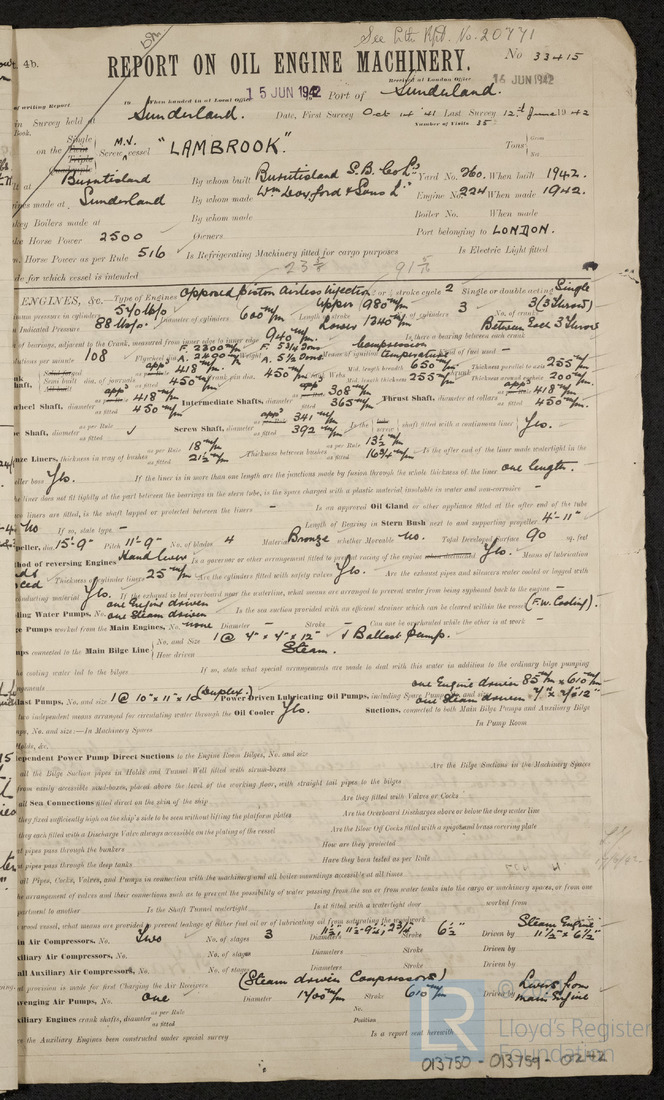 See Ltr Rpt. No. 20771
4b.
REPORT ON OIL ENGINE MACHINERY.
No 33415
Received at London Office 15 JUN 1942
of writing Report 19 When handed in at Local Office 15 JUN 1942 Port of Sunderland.
in Survey held at Sunderland. Date, First Survey Oct 14 '41 Last Survey 12th June 1942
Book. Number of Visits 35
on the Single Screw vessel M.V. "LAMBROOK". Tons Gross Net
lt at Burntisland By whom built Burntisland S.B. Co Ld Yard No. 260. When built 1942.
ines made at Sunderland By whom made Wm Doxford & Sons Ld Engine No. 224 When made 1942.
key Boilers made at By whom made Boiler No. When made
ke Horse Power 2500 Owners Port belonging to LONDON.
m. Horse Power as per Rule 516 Is Refrigerating Machinery fitted for cargo purposes Is Electric Light fitted
de for which vessel is intended 23 5/8 91 5/16
ENGINES, &c. Type of Engines Opposed piston Airless Injection 2 or 4 stroke cycle 2 Single or double acting Single
mum pressure in cylinders 570 lbs/□ Diameter of cylinders 600 m/m Length of stroke Upper 980 m/m Lower 1340 m/m No. of cylinders 3 No. of cranks 3 (3 Throw)
n Indicated Pressure 88 lbs/□
of bearings, adjacent to the Crank, measured from inner edge to inner edge 940 m/m Is there a bearing between each crank Between Each 3 Throw
olutions per minute 108 Flywheel dia. F. 2300 m/m A. 2490 m/m Weight
Means of ignition Compression Temperature Kind of fuel used –
haft, dia. of journals as per Rule appd 418 m/m as fitted 450 m/m Crank pin dia. 450 m/m Mid. length breadth 650 m/m Mid. length thickness 255 m/m Thickness parallel to axis 255 m/m Thickness around eyehole 200 m/m
wheel Shaft, diameter appd 418 m/m as fitted 450 m/m Intermediate Shafts, diameter appd 308 m/m as fitted 365 m/m Thrust Shaft, diameter at collars appd 418 m/m as fitted 450 m/m
e Shaft, diameter as per Rule as fitted ✓ Screw Shaft, diameter appd 341 m/m as fitted 392 m/m Is the screw shaft fitted with a continuous liner Yes.
nze Liners, thickness in way of bushes as per Rule 18 m/m as fitted 21½ m/m Thickness between bushes as per Rule 13½ m/m as fitted 16¾ m/m Is the after end of the liner made watertight in the
eller boss Yes. If the liner is in more than one length are the junctions made by fusion through the whole thickness of the liner one length.
he liner does not fit tightly at the part between the bearings in the stern tube, is the space charged with a plastic material insoluble in water and non-corrosive –
wo liners are fitted, is the shaft lapped or protected between the liners – Is an approved Oil Gland or other appliance fitted at the after end of the tube
No If so, state type – Length of Bearing in Stern Bush next to and supporting propeller 4'-11"
peller, dia. 15'-9" Pitch 11'-9" No. of blades 4 Material Bronze whether Moveable No. Total Developed Surface 90 sq. feet
hod of reversing Engines Hand Lever Is a governor or other arrangement fitted to prevent racing of the engine when declutched Yes. Means of lubrication
Thickness of cylinder liners 25 m/m Are the cylinders fitted with safety valves Yes. Are the exhaust pipes and silencers water cooled or lagged with
onducting material Yes. If the exhaust is led overboard near the waterline, what means are arranged to prevent water being syphoned back to the engine –
ling Water Pumps, No. one Engine driven one Steam driven Is the sea suction provided with an efficient strainer which can be cleared within the vessel (F.W. Cooling).
ge Pumps worked from the Main Engines, No. none Diameter – Stroke – Can one be overhauled while the other is at work –
mps connected to the Main Bilge Line No. and Size 1 @ 4" x 4" x 12" & Ballast Pump.
How driven Steam.
he cooling water led to the bilges If so, state what special arrangements are made to deal with this water in addition to the ordinary bilge pumping
ngements
llast Pumps, No. and size 1 @ 10" x 11" x 10 (Duplex.) Power Driven Lubricating Oil Pumps, including Spare Pump, No. and size one Engine driven 85 m/m x 610 m/m one Steam driven
two independent means arranged for circulating water through the Oil Cooler Yes. Suctions, connected to both Main Bilge Pumps and Auxiliary Bilge
mps, No. and size:—In Machinery Spaces In Pump Room
Holds, &c.
dependent Power Pump Direct Suctions to the Engine Room Bilges, No. and size
all the Bilge Suction pipes in Holds and Tunnel Well fitted with strum-boxes Are the Bilge Suctions in the Machinery Spaces
from easily accessible mud-boxes, placed above the level of the working floor, with straight tail pipes to the bilges
all Sea Connections fitted direct on the skin of the ship Are they fitted with Valves or Cocks
they fixed sufficiently high on the ship's side to be seen without lifting the platform plates Are the Overboard Discharges above or below the deep water line
they each fitted with a Discharge Valve always accessible on the plating of the vessel Are the Blow Off Cocks fitted with a spigot and brass covering plate
at pipes pass through the bunkers How are they protected
at pipes pass through the deep tanks Have they been tested as per Rule
all Pipes, Cocks, Valves, and Pumps in connection with the machinery and all boiler mountings accessible at all times
he arrangement of valves and their connections such as to prevent the possibility of water passing from the sea or from water tanks into the cargo or machinery spaces, or from one
partment to another Is the Shaft Tunnel watertight Is it fitted with a watertight door worked from
a wood vessel, what means are provided to prevent leakage of either fuel oil or of lubricating oil from saturating the woodwork
in Air Compressors, No. Two No. of stages 3 Diameters 11½, 11½-9¼, 2¾ Stroke 6½" Driven by Steam Engine 11½ x 6½"
xiliary Air Compressors, No. No. of stages Diameters Stroke Driven by
all Auxiliary Air Compressors, No. No. of stages Diameters Stroke Driven by
at provision is made for first Charging the Air Receivers (Steam driven Compressors)
venging Air Pumps, No. one Diameter 1400 m/m Stroke 610 m/m Driven by Levers from Main Engine
xiliary Engines crank shafts, diameter as per Rule as fitted No. Position
ve the Auxiliary Engines been constructed under special survey Is a report sent herewith
LR
Lloyd's Register
Foundation
013750 - 013759 - 0242